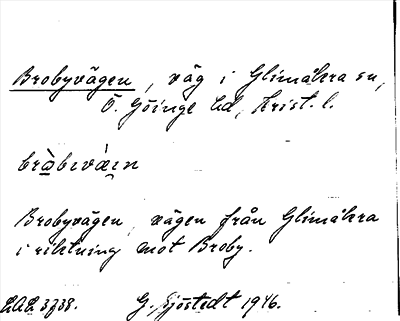 Brobyvägen, väg i Glimåkra sn,
Ö. Göinge hd, Krist. l.
Brobyvägen, vägen från Glimåkra
i riktning mot Broby.
G. Sjöstedt 1946.